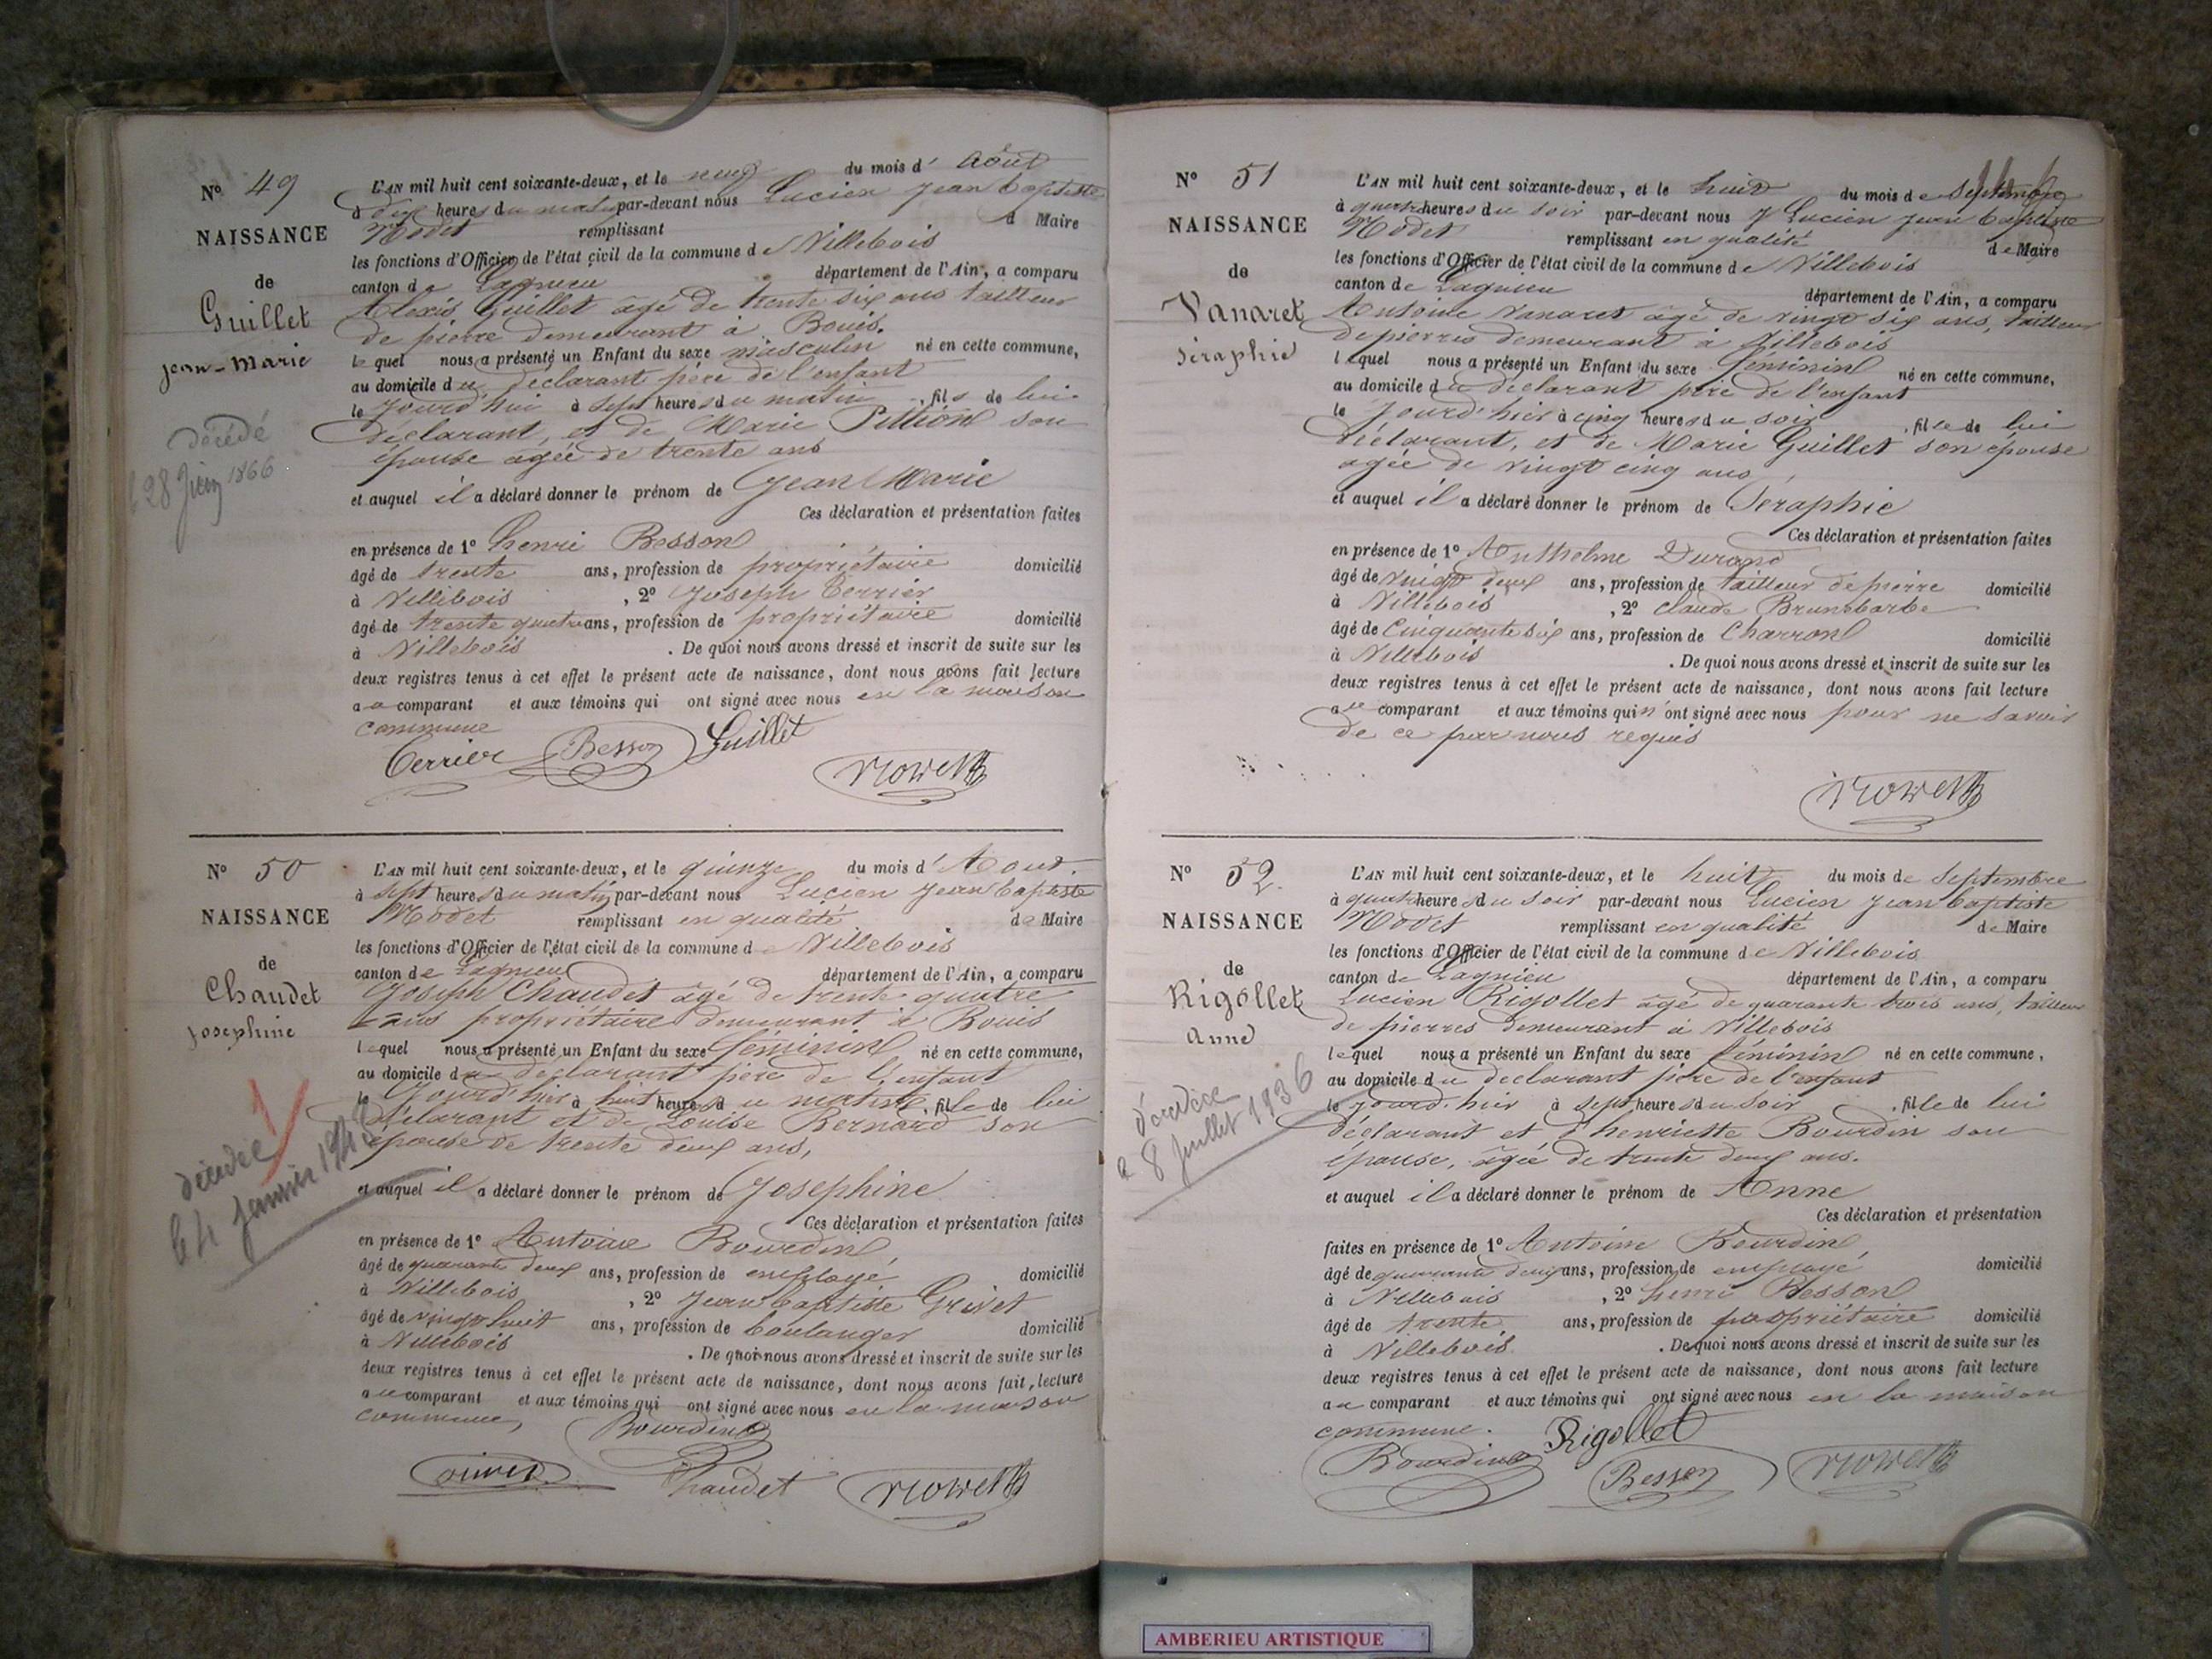 Nº 49
NAISSANCE
de
Guillet
jean-Marie
décédé
28 Juin 1866
L'AN mil huit cent soixante-deux, et le neuf du mois d' Août
à dix heures du matin par-devant nous Lucien Jean baptiste
Modet remplissant d Maire
les fonctions d'Officier de l'état civil de la commune de Villebois
canton de Lagnieu département de l'Ain, a comparu
Alexis Guillet âgé de trente six ans tailleur
de pierre demeurant à Bouis.
lequel nous a présenté un Enfant du sexe masculin né en cette commune,
au domicile du déclarant père de l'enfant
le jourd'hui à sept heures du matin, fils de lui
déclarant, et de Marie Pittion son
épouse agée de trente ans
et auquel il a déclaré donner le prénom de Jean Marie
Ces déclaration et présentation faites
en présence de 1º henri Besson
âgé de trente ans, profession de propriétaire domicilié
à Villebois, 2º Joseph Terrier
âgé de trente quatre ans, profession de propriétaire domicilié
à Villebois. De quoi nous avons dressé et inscrit de suite sur les
deux registres tenus à cet effet le présent acte de naissance, dont nous avons fait lecture
au comparant et aux témoins qui ont signé avec nous en la maison
commune
Terrier Besson Guillet
Modet
Nº 50
NAISSANCE
de
Chaudet
Josephine
décédée
le 4 janvier
L'AN mil huit cent soixante-deux, et le quinze du mois d' Aout.
à sept heures du matin par-devant nous Lucien Jean baptiste
Modet remplissant en qualité de Maire
les fonctions d'Officier de l'état civil de la commune de Villebois
canton de Lagnieu département de l'Ain, a comparu
Joseph Chaudet âgé de trente quatre
ans propriétaire demeurant à Bouis
lequel nous a présenté un Enfant du sexe féminin né en cette commune,
au domicile du déclarant père de l'enfant
le Jourd'hier à huit heures du matin, fille de lui
déclarant et de Louise Bernard son
épouse de trente deux ans,
et auquel il a déclaré donner le prénom de Josephine
Ces déclaration et présentation faites
en présence de 1º Antoine Bourdin
âgé de quarante deux ans, profession de employé domicilié
à Villebois, 2º Jean baptiste Grivet
âgé de vingt huit ans, profession de boulanger domicilié
à Villebois. De quoi nous avons dressé et inscrit de suite sur les
deux registres tenus à cet effet le présent acte de naissance, dont nous avons fait lecture
au comparant et aux témoins qui ont signé avec nous en la maison
commune, Bourdin
Grivet Chaudet Modet
Nº 51
NAISSANCE
de
Vanaret
Séraphie
L'AN mil huit cent soixante-deux, et le huit du mois de Septembre
à quatre heures du soir par-devant nous Lucien Jean baptiste
Modet remplissant en qualité de Maire
les fonctions d'Officier de l'état civil de la commune de Villebois
canton de Lagnieu département de l'Ain, a comparu
Antoine Vanaret âgé de vingt six ans, tailleur
de pierres demeurant à Villebois
lequel nous a présenté un Enfant du sexe féminin né en cette commune,
au domicile du déclarant père de l'enfant
le Jourd'hier à cinq heures du soir, fille de lui
déclarant, et de Marie Guillet son épouse
agée de vingt cinq ans,
et auquel il a déclaré donner le prénom de Seraphie
Ces déclaration et présentation faites
en présence de 1º Anthelme Durand
âgé de vingt deux ans, profession de tailleur de pierre domicilié
à Villebois, 2º Claude Brunebarbe
âgé de cinquante six ans, profession de Charron domicilié
à Villebois. De quoi nous avons dressé et inscrit de suite sur les
deux registres tenus à cet effet le présent acte de naissance, dont nous avons fait lecture
au comparant et aux témoins qui n'ont signé avec nous pour ne savoir
de ce par nous requis
Modet
Nº 52.
NAISSANCE
de
Rigollet
Anne
décédée
le 8 juillet 1936
L'AN mil huit cent soixante-deux, et le huit du mois de Septembre
à quatre heures du soir par-devant nous Lucien Jean baptiste
Modet remplissant en qualité de Maire
les fonctions d'Officier de l'état civil de la commune de Villebois
canton de Lagnieu département de l'Ain, a comparu
Lucien Rigollet âgé de quarante trois ans, tailleur
de pierres demeurant à Villebois
lequel nous a présenté un Enfant du sexe féminin né en cette commune,
au domicile du déclarant père de l'enfant
le jourd'hier à sept heures du soir, fille de lui
déclarant et d'henriette Bourdin son
épouse, âgée de trente deux ans.
et auquel il a déclaré donner le prénom de Anne
Ces déclaration et présentation
faites en présence de 1º Antoine Bourdin,
âgé de quarante deux ans, profession de employé domicilié
à Villebois, 2º henri Besson
âgé de trente ans, profession de propriétaire domicilié
à Villebois. De quoi nous avons dressé et inscrit de suite sur les
deux registres tenus à cet effet le présent acte de naissance, dont nous avons fait lecture
au comparant et aux témoins qui ont signé avec nous en la maison
commune. Rigollet
Bourdin Besson Modet
AMBERIEU ARTISTIQUE